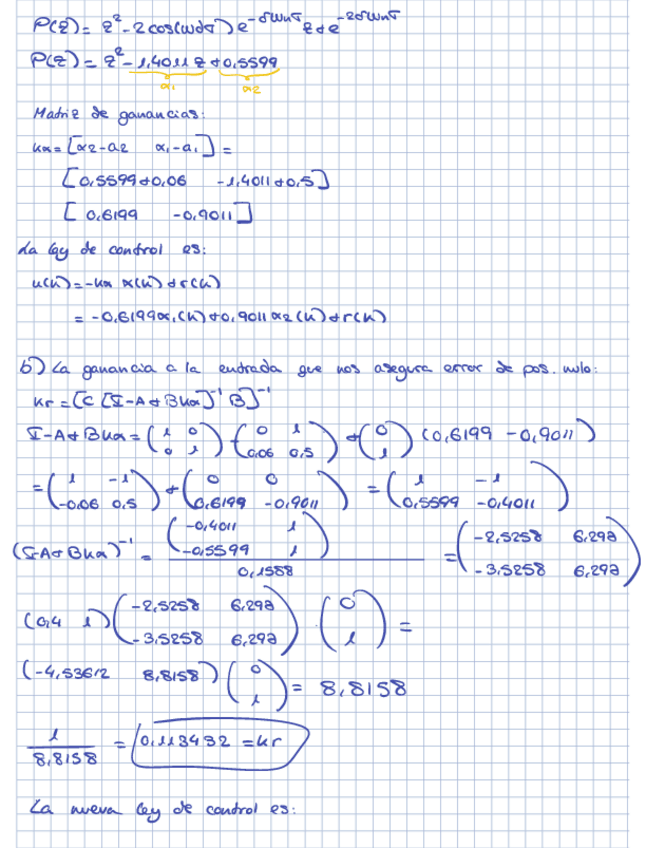 P(z) = z² - 2cos(wdσ) e^-δwnσ z + e^-2δwnσ
P(z) = z² - 1,4011 z + 0,5599
α₁ α₂
Matriz de ganancias:
kx = [α2-a2 α1-a1] =
[0,5599+0,06 -1,4011+0,5]
[0,6199 -0,9011]
La ley de control es:
u(k) = -kx x(k) + r(k)
= -0,6199x₁(k) + 0,9011x2(k) + r(k)
b) La ganancia a la entrada que nos asegura error de pos. nulo:
kr = [C [I-A+Bkx]⁻¹ B]⁻¹
I-A+Bkx = (1 0) - (0 1) + (0) (0,6199 -0,9011)
(0 1) (0,06 0,5) (1)
= (1 -1) + (0 0) = (1 -1)
(-0,06 0,5) (0,6199 -0,9011) (0,5599 -0,4011)
(-0,4011 1)
(I-A+Bkx)⁻¹ = (-0,5599 1) = (-2,5258 6,297)
0,1588 (-3,5258 6,297)
(0,4 1) (-2,5258 6,297) · (0) =
(-3,5258 6,297) (1)
(-4,53612 8,8158) (0) = 8,8158
(1)
1
= 0,113432 = kr
8,8158
La nueva ley de control es: